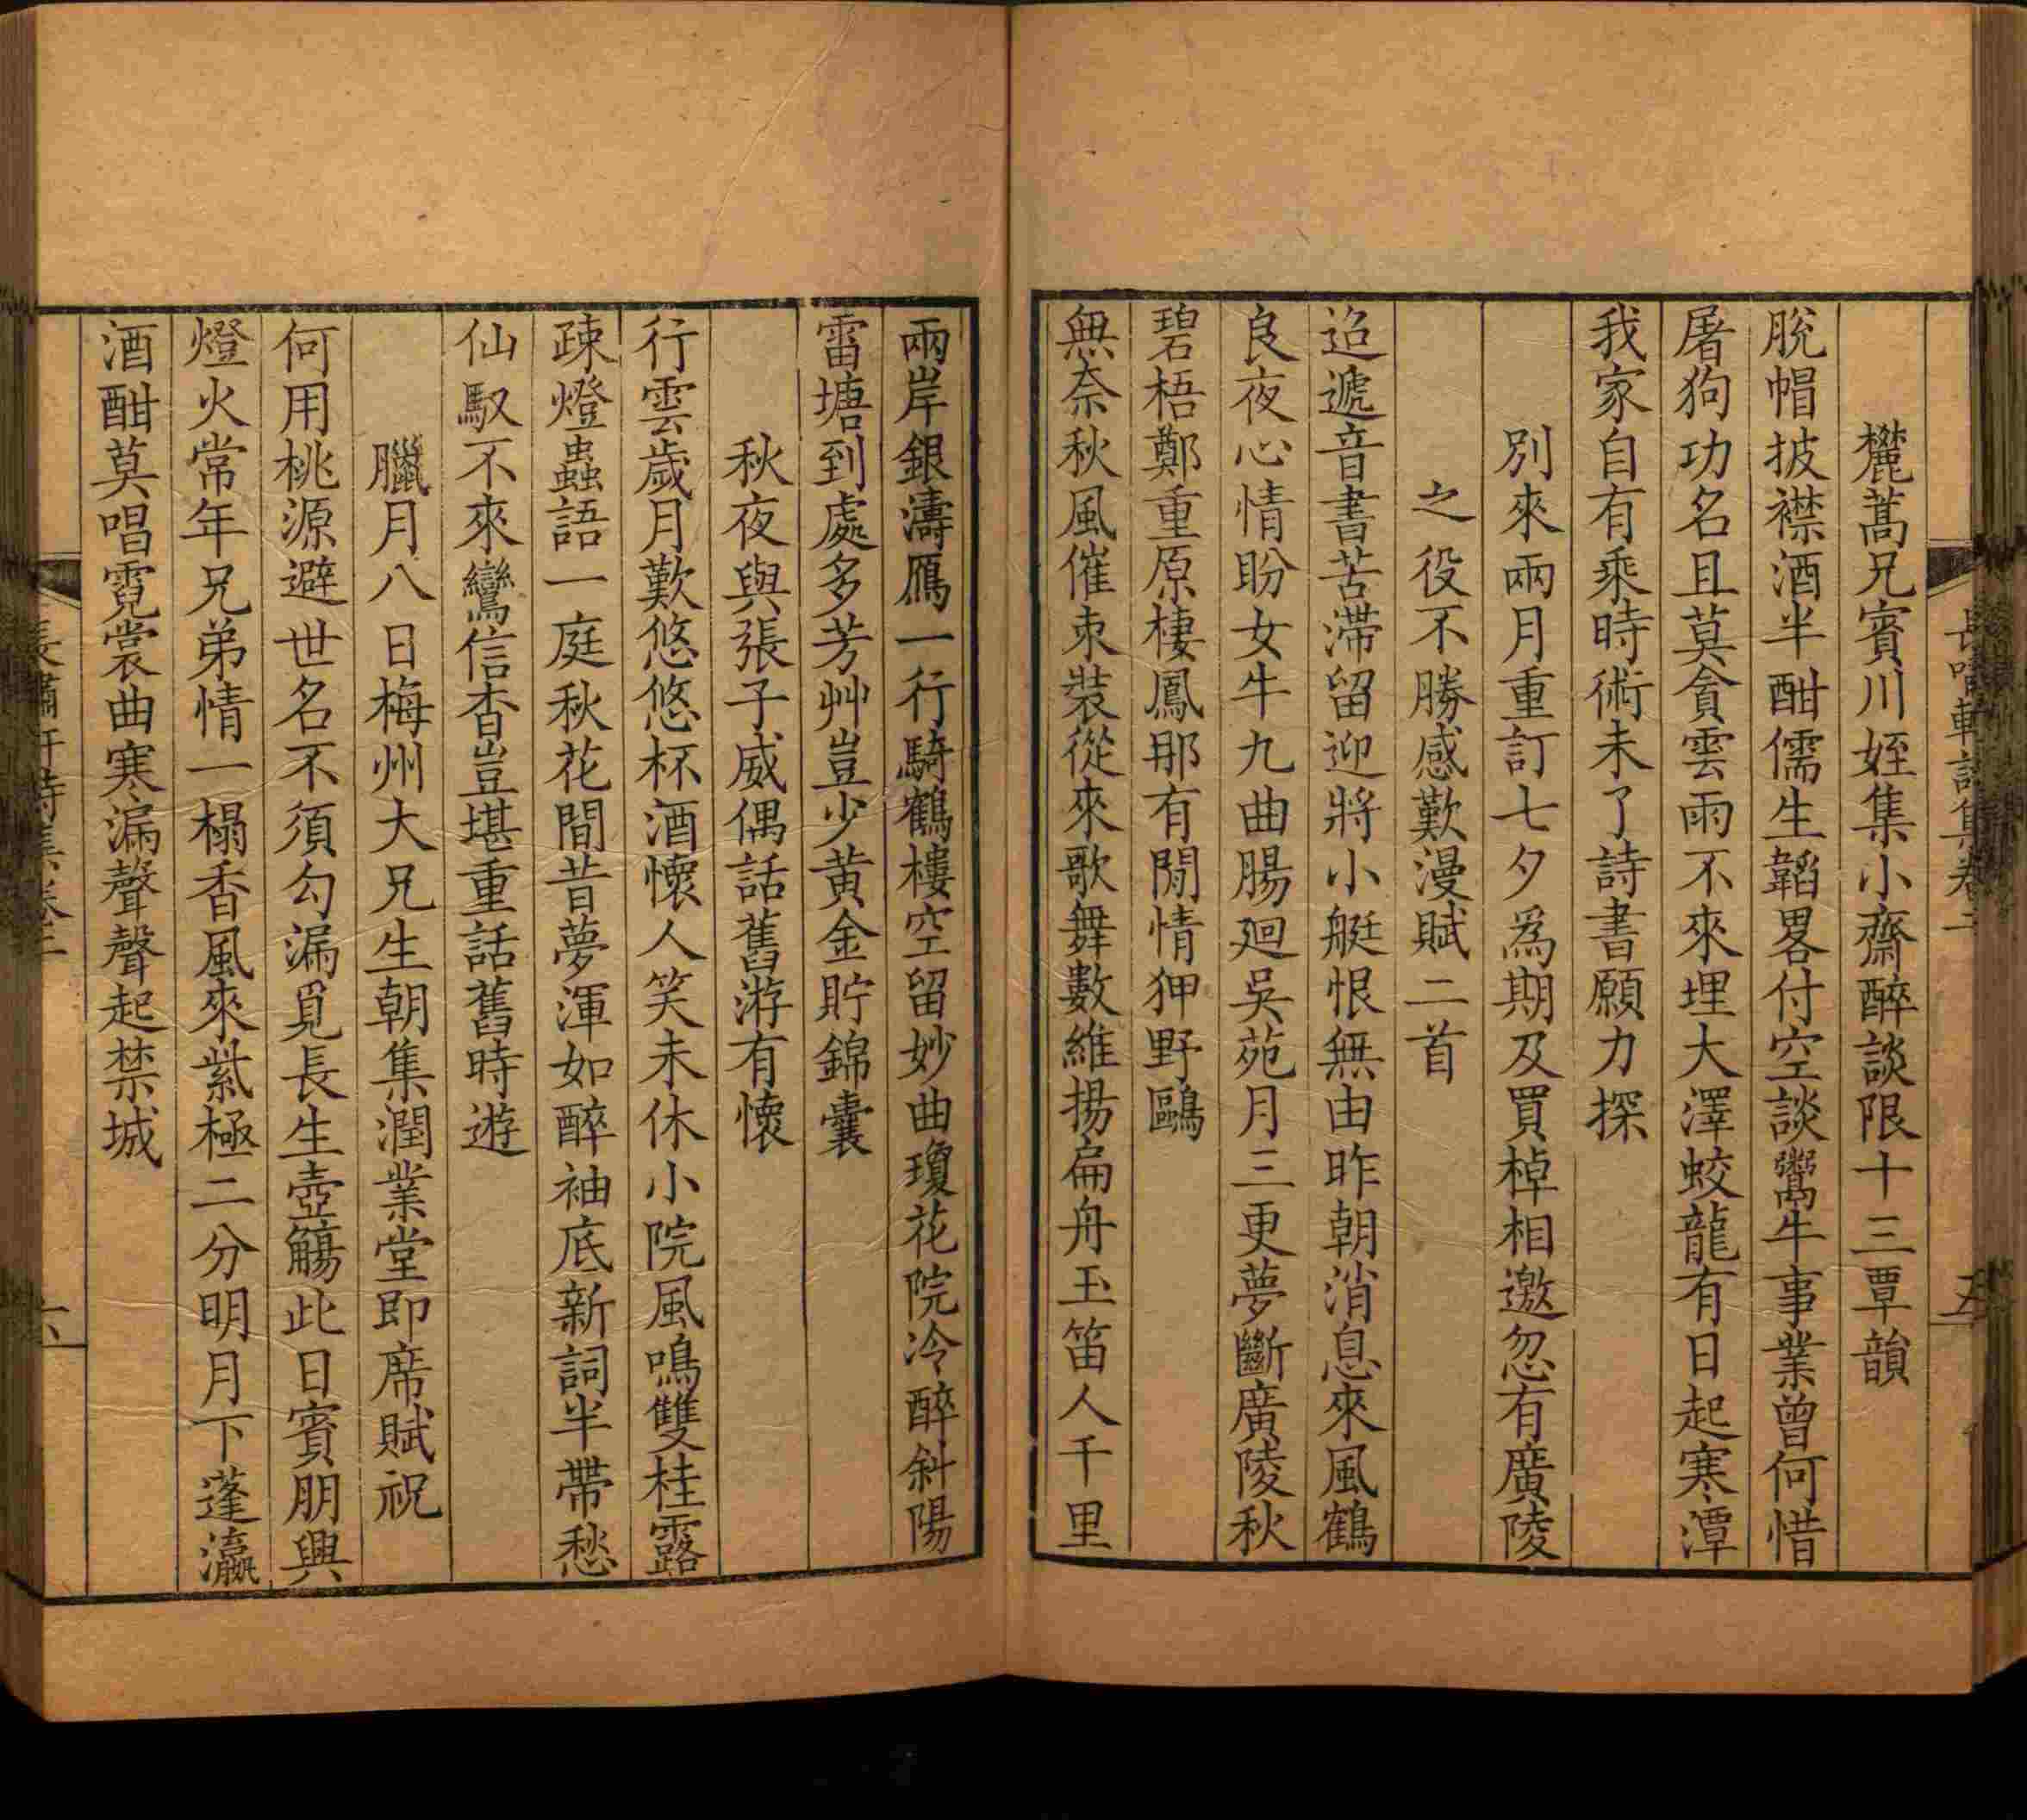 欎蒿兄賓川姪集小齋醉談限十三覃韻
脫帽披襟酒半酣儒生韜畧付空談鬻牛事業曾何惜
屠狗功名且莫貪雲雨不來埋大澤蛟龍有日起寒潭
我家自有乘時術未了詩書願力探
別來兩月重訂七夕爲期及買棹相邀忽有廣陵
之役不勝感歎漫賦二首
迢遞音書苦滯留迎將小艇恨無由昨朝消息來風鶴
良夜心情盼女牛九曲腸廻吳苑月三更夢斷廣陵秋
碧梧鄭重原棲鳳那有閒情狎野鷗
無奈秋風催束裝從來歌舞數維揚扁舟玉笛人千里
長嘯軒詩集卷二
五
兩岸銀濤鴈一行騎鶴樓空留妙曲瓊花院冷醉斜陽
雷塘到處多芳艸豈少黃金貯錦囊
秋夜與張子威偶話舊游有懷
行雲歲月歎悠悠杯酒懷人笑未休小院風鳴雙桂露
疎燈蟲語一庭秋花間昔夢渾如醉袖底新詞半帶愁
仙馭不來鸞信杳豈堪重話舊時遊
臘月八日梅州大兄生朝集潤業堂即席賦祝
何用桃源避世名不須勾漏覓長生壺觴此日賓朋興
燈火常年兄弟情一榻香風來紫極二分明月下蓬瀛
酒酣莫唱霓裳曲寒漏聲聲起禁城
長嘯軒詩集卷三
六